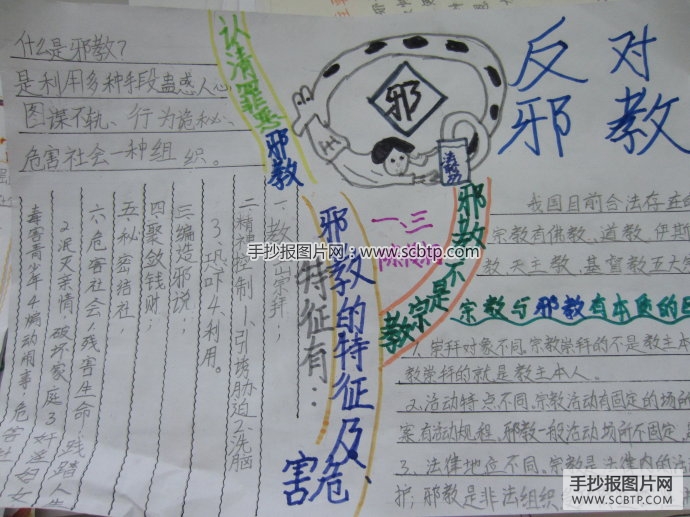 什么是邪教?
是利用多种手段蛊惑人心
图谋不轨、行为诡秘、
危害社会一种组织。
认清罪恶邪教
邪
反对
邪教
邪教的特征及危害
特征有:
一教主崇拜;
二精神控制1、引诱胁迫2、洗脑
3、恐吓4.利用。
三编造邪说;
四聚敛钱财
五秘密结社
六危害社会 残害生命 践踏人生
2泯灭亲情 破坏家庭3奸淫妇女
毒害青少年4煽动闹事危害社
邪教不是宗教
我国目前合法存在的
宗教有佛教、道教、伊斯
教、天主教、基督教五大
宗教与邪教有本质的区
1、崇拜对象不同。宗教崇拜的不是教主本
教崇拜的就是教主本人。
2、活动特点不同、宗教活动有固定的场所
案有活动规程、邪教一般活动场所不固定,
3、法律地位不同、宗教是法律内的活
护;邪教是非法组织
手抄报图片网:www.scbtp.com
手抄报图片网
WWW.SCBTP.COM